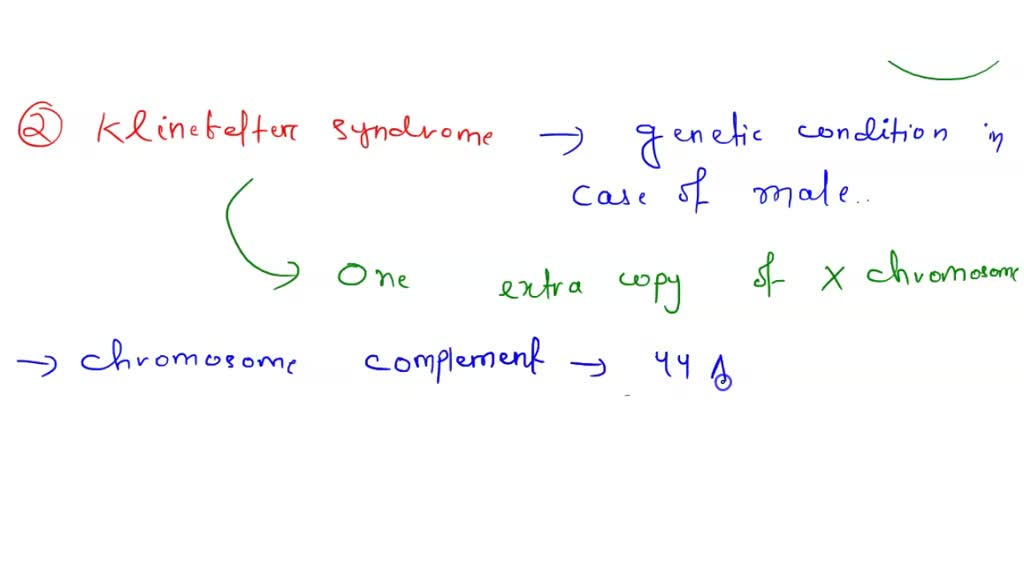 ② Klinefelter syndrome → genetic condition in
case of male..
→ One extra copy of X chromosome
→ chromosome complement → 44 A